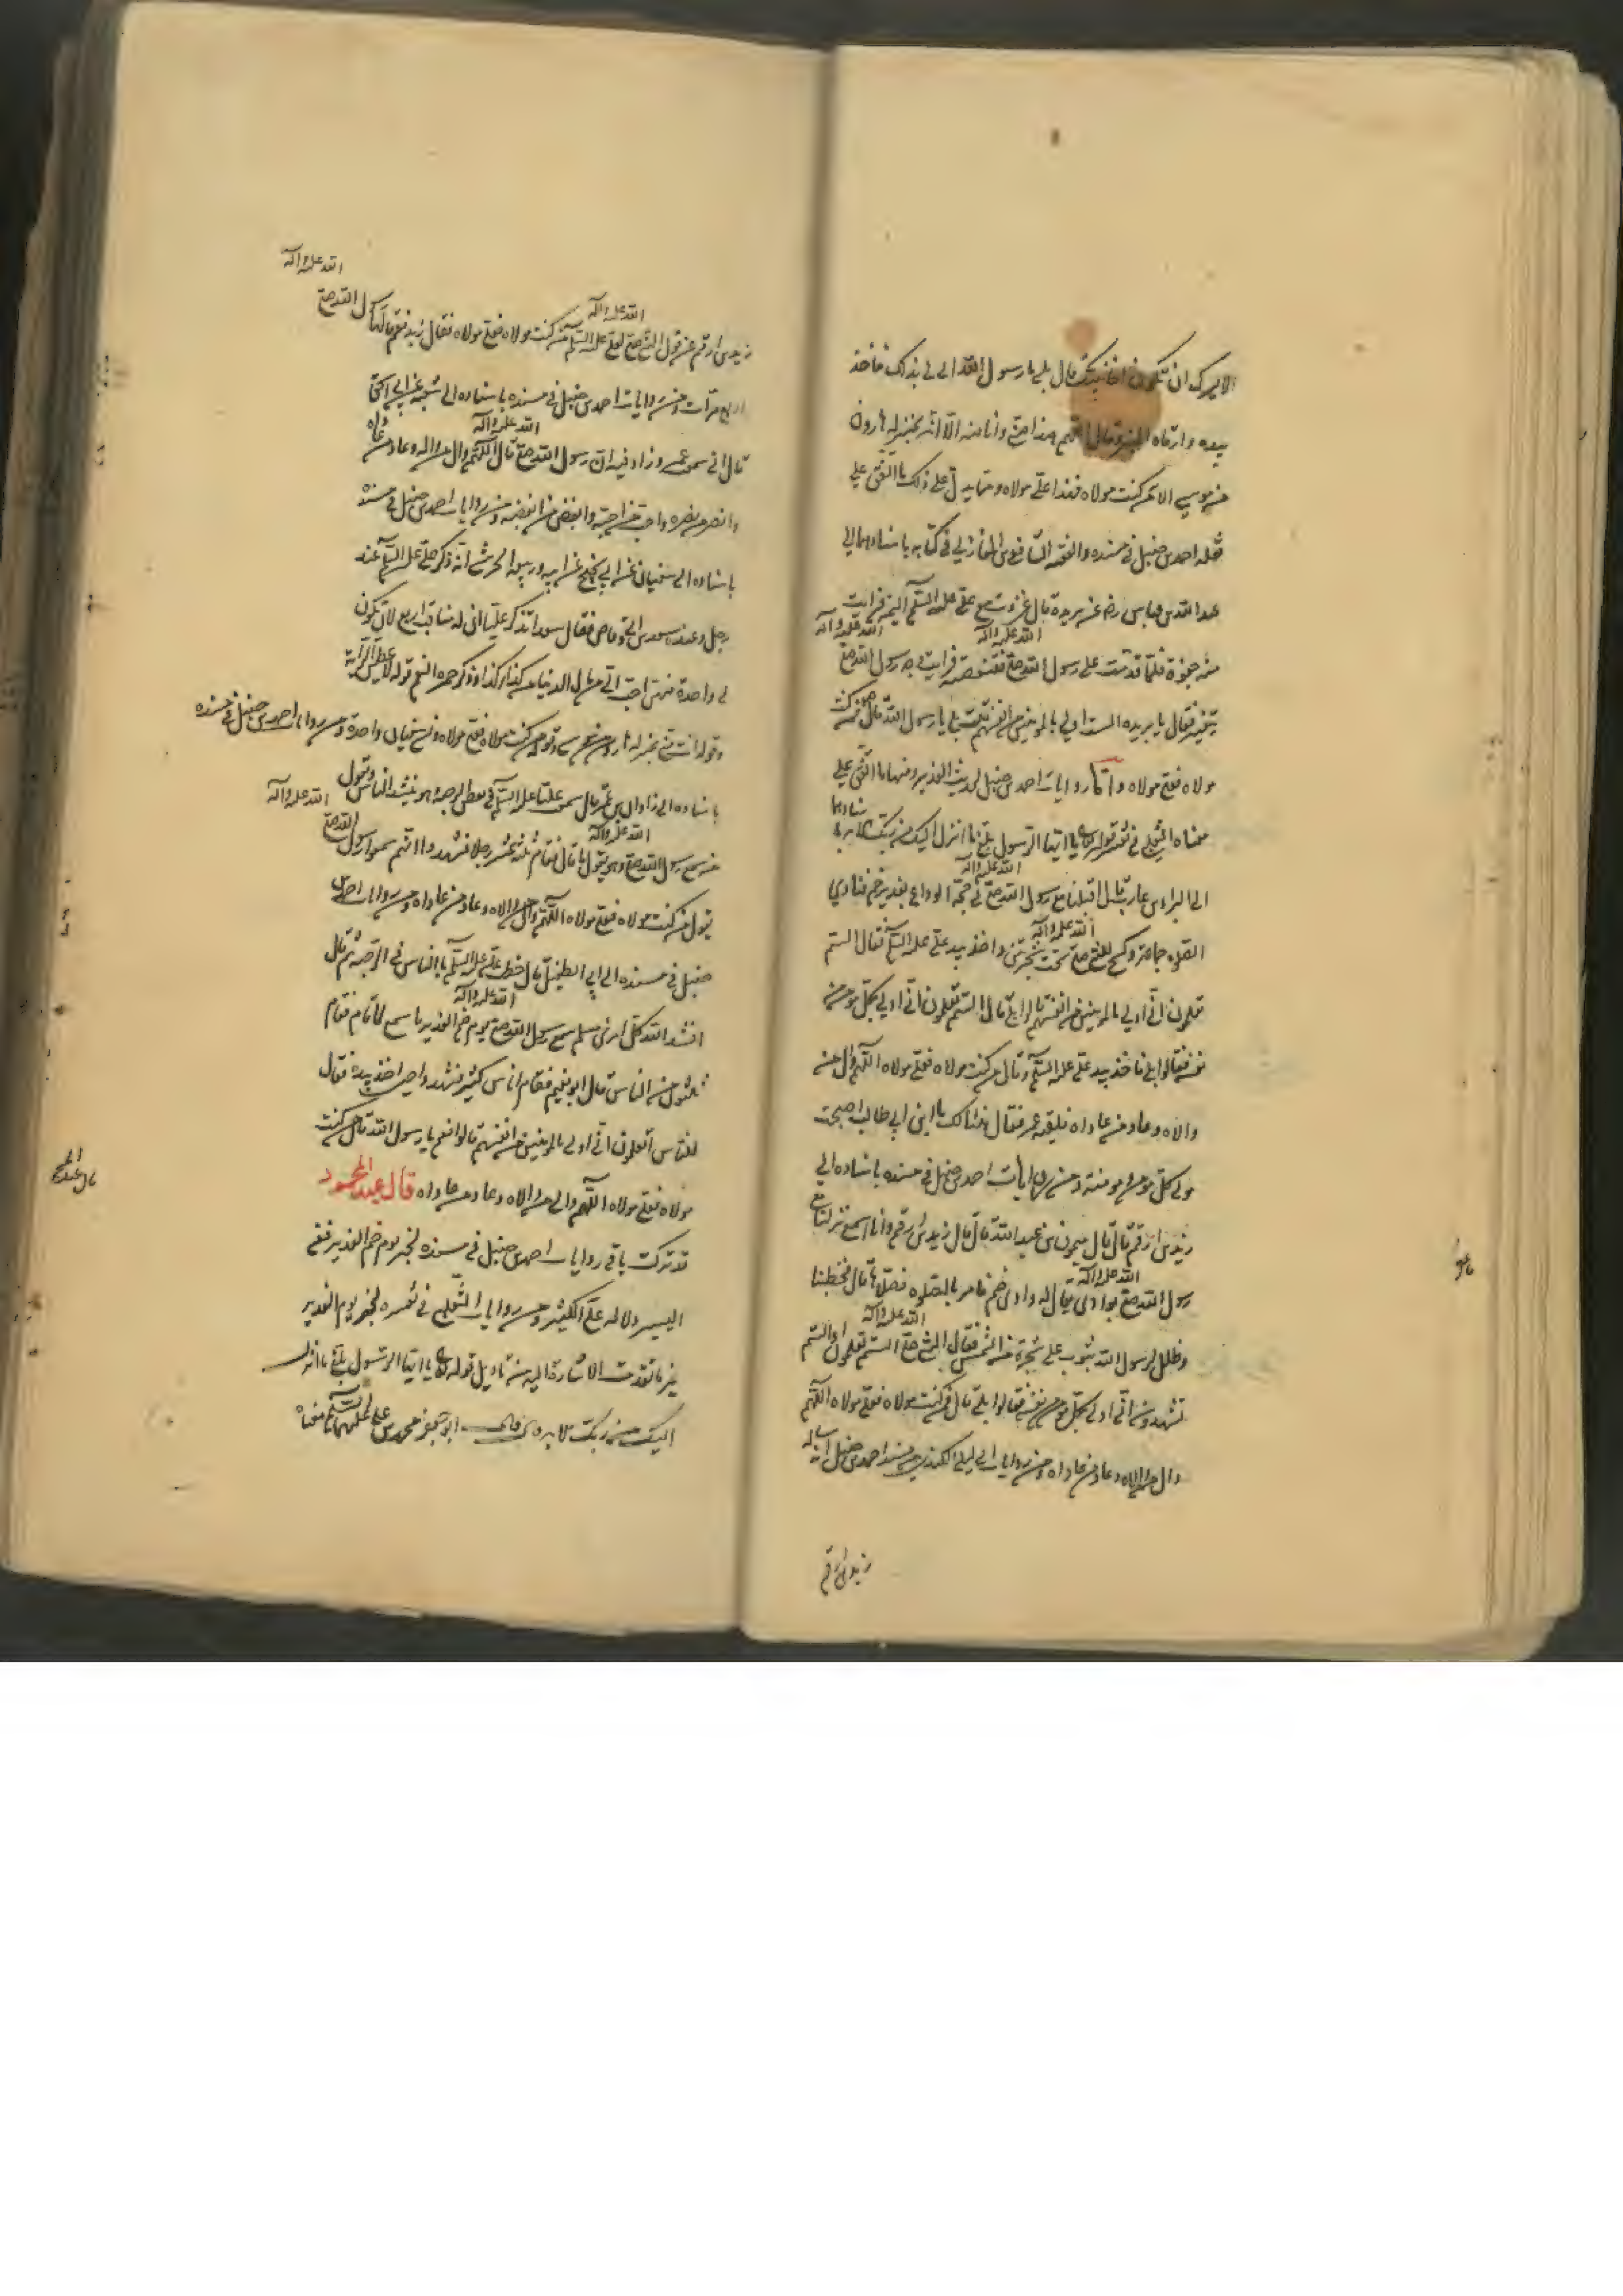 الا يسرك ان تكون اخا نبيك قال بلى يا رسول الله انى لى بذلك فاخذ
بيده وارقاه المنبر وقال اللهم هذا منى وانا منه الا انه بمنزله هارون
من موسى الا من كنت مولاه فهذا على مولاه ومما يدل على ذلك ما اتفق على
نقله احمد بن حنبل فى مسنده والفقيه الشافعى بن المغازلى فى كتابه باسنادهما الى
عبد الله بن عباس رضه عن بريدة قال غزوت مع على عليه السلم اليمن فرايت
منه جفوة فلما قدمت على رسول الله صلى الله عليه واله فتنقصته فرايت وجه رسول الله صلى الله عليه واله
يتغير فقال يا بريده الست اولى بالمومنين من انفسهم قلت بلى يا رسول الله قال فمن كنت
مولاه فعلى مولاه واما روايات احمد بن حنبل لحديث الغدير فمنها ما اتفق على
معناه الثعلبى فى تفسير قوله تع يا ايها الرسول بلغ ما انزل اليك من ربك الايه باسنادهما
الى البراء بن عازب قال اقبلنا مع رسول الله صلى الله عليه واله فى حجة الوداع بغدير خم فنادى
الصلوه جامعة وكسح للنبى صلى الله عليه واله تحت شجرتين واخذ بيد على عليه السلم فقال الستم
تعلمون انى اولى بالمومنين من انفسهم قالوا بلى قال الستم تعلمون انى اولى بكل مومن من
نفسه قالوا بلى فاخذ بيد على عليه السلم وقال من كنت مولاه فعلى مولاه اللهم وال من
والاه وعاد من عاداه فلقيه عمر فقال هنيئا لك يا ابن ابى طالب اصبحت
مولى كل مومن ومومنة ومن روايات احمد بن حنبل فى مسنده باسناده الى
زيد بن ارقم قال قال ميمون بن عبد الله قال قال زيد بن ارقم وانا اسمع نزلنا مع
رسول الله صلى الله عليه واله بوادى يقال له وادى خم فامر بالصلوه فصلاها قال فخطبنا
وظلل لرسول الله بثوب على شجرة من الشمس فقال النبى صلى الله عليه واله الستم تعلمون او الستم
تشهدون انى اولى بكل مومن من نفسه قالوا بلى قال فمن كنت مولاه فعلى مولاه اللهم
وال من والاه وعاد من عاداه ومن روايات ابى ليلى الكندى من مسند احمد بن حنبل انه ساله
زيد بن ارقم
زيد بن ارقم عن قول النبى صلى الله عليه واله لعلى عليه السلم من كنت مولاه فعلى مولاه فقال زيد نعم قالها رسول الله صلى الله عليه واله
اربع مرات ومن روايات احمد بن حنبل فى مسنده باسناده الى شعبه عن ابى اسحق
قال انى سمعت عمر وزاد فيه ان رسول الله صلى الله عليه واله قال اللهم وال من والاه وعاد من عاداه
وانصر من نصره واحب من احبه وابغض من ابغضه ومن روايات احمد بن حنبل فى مسنده
باسناده الى سفيان عن ابى نجيح عن ابيه وربيعه الحرشى انه ذكر على عليه السلم عند
رجل وعنده سعد بن ابى وقاص فقال سعد اتذكر عليا ان له مناقب اربع لان تكون
لى واحدة منهن احب الى من مال الدنيا من كذا وكذا وذكر حمر النعم قوله لاعطين الراية
وقوله انت منى بمنزله هارون من موسى وقوله من كنت مولاه فعلى مولاه ونسى سفيان واحدة ومن روايات احمد بن حنبل فى مسنده
باسناده الى زاذان بن عمر قال سمعت عليا عليه السلم فى بعض الرحبة وهو ينشد الناس ويقول
من سمع رسول الله صلى الله عليه واله وهو يقول ما قال فقام ثلثه عشر رجلا فشهدوا انهم سمعوا رسول الله صلى الله عليه واله
يقول من كنت مولاه فعلى مولاه اللهم وال من والاه وعاد من عاداه ومن روايات احمد بن
حنبل فى مسنده الى ابى الطفيل قال خطب على عليه السلم بالناس فى الرحبة ثم قال
انشد الله كل امرئ مسلم سمع رسول الله صلى الله عليه واله يوم خم الغدير ما سمع لما قام فقام
ثلثون من الناس قال ابو نعيم فقام اناس كثير فشهدوا حين اخذ بيده فقال
للناس اتعلمون انى اولى بالمومنين من انفسهم قالوا نعم يا رسول الله قال من كنت
مولاه فعلى مولاه اللهم وال من والاه وعاد من عاداه قال عبد المحمود
قد تركت باقى روايات احمد بن حنبل فى مسنده لخبر يوم خم الغدير ففى
اليسير دلاله على الكثير ومن روايات الثعلبى فى تفسيره لخبر يوم الغدير
غير ما تقدمت الاشارة اليه من تاويل قوله تع يا ايها الرسول بلغ ما انزل
اليك من ربك الايه قال ابو جعفر محمد بن على عليهما السلم معناه